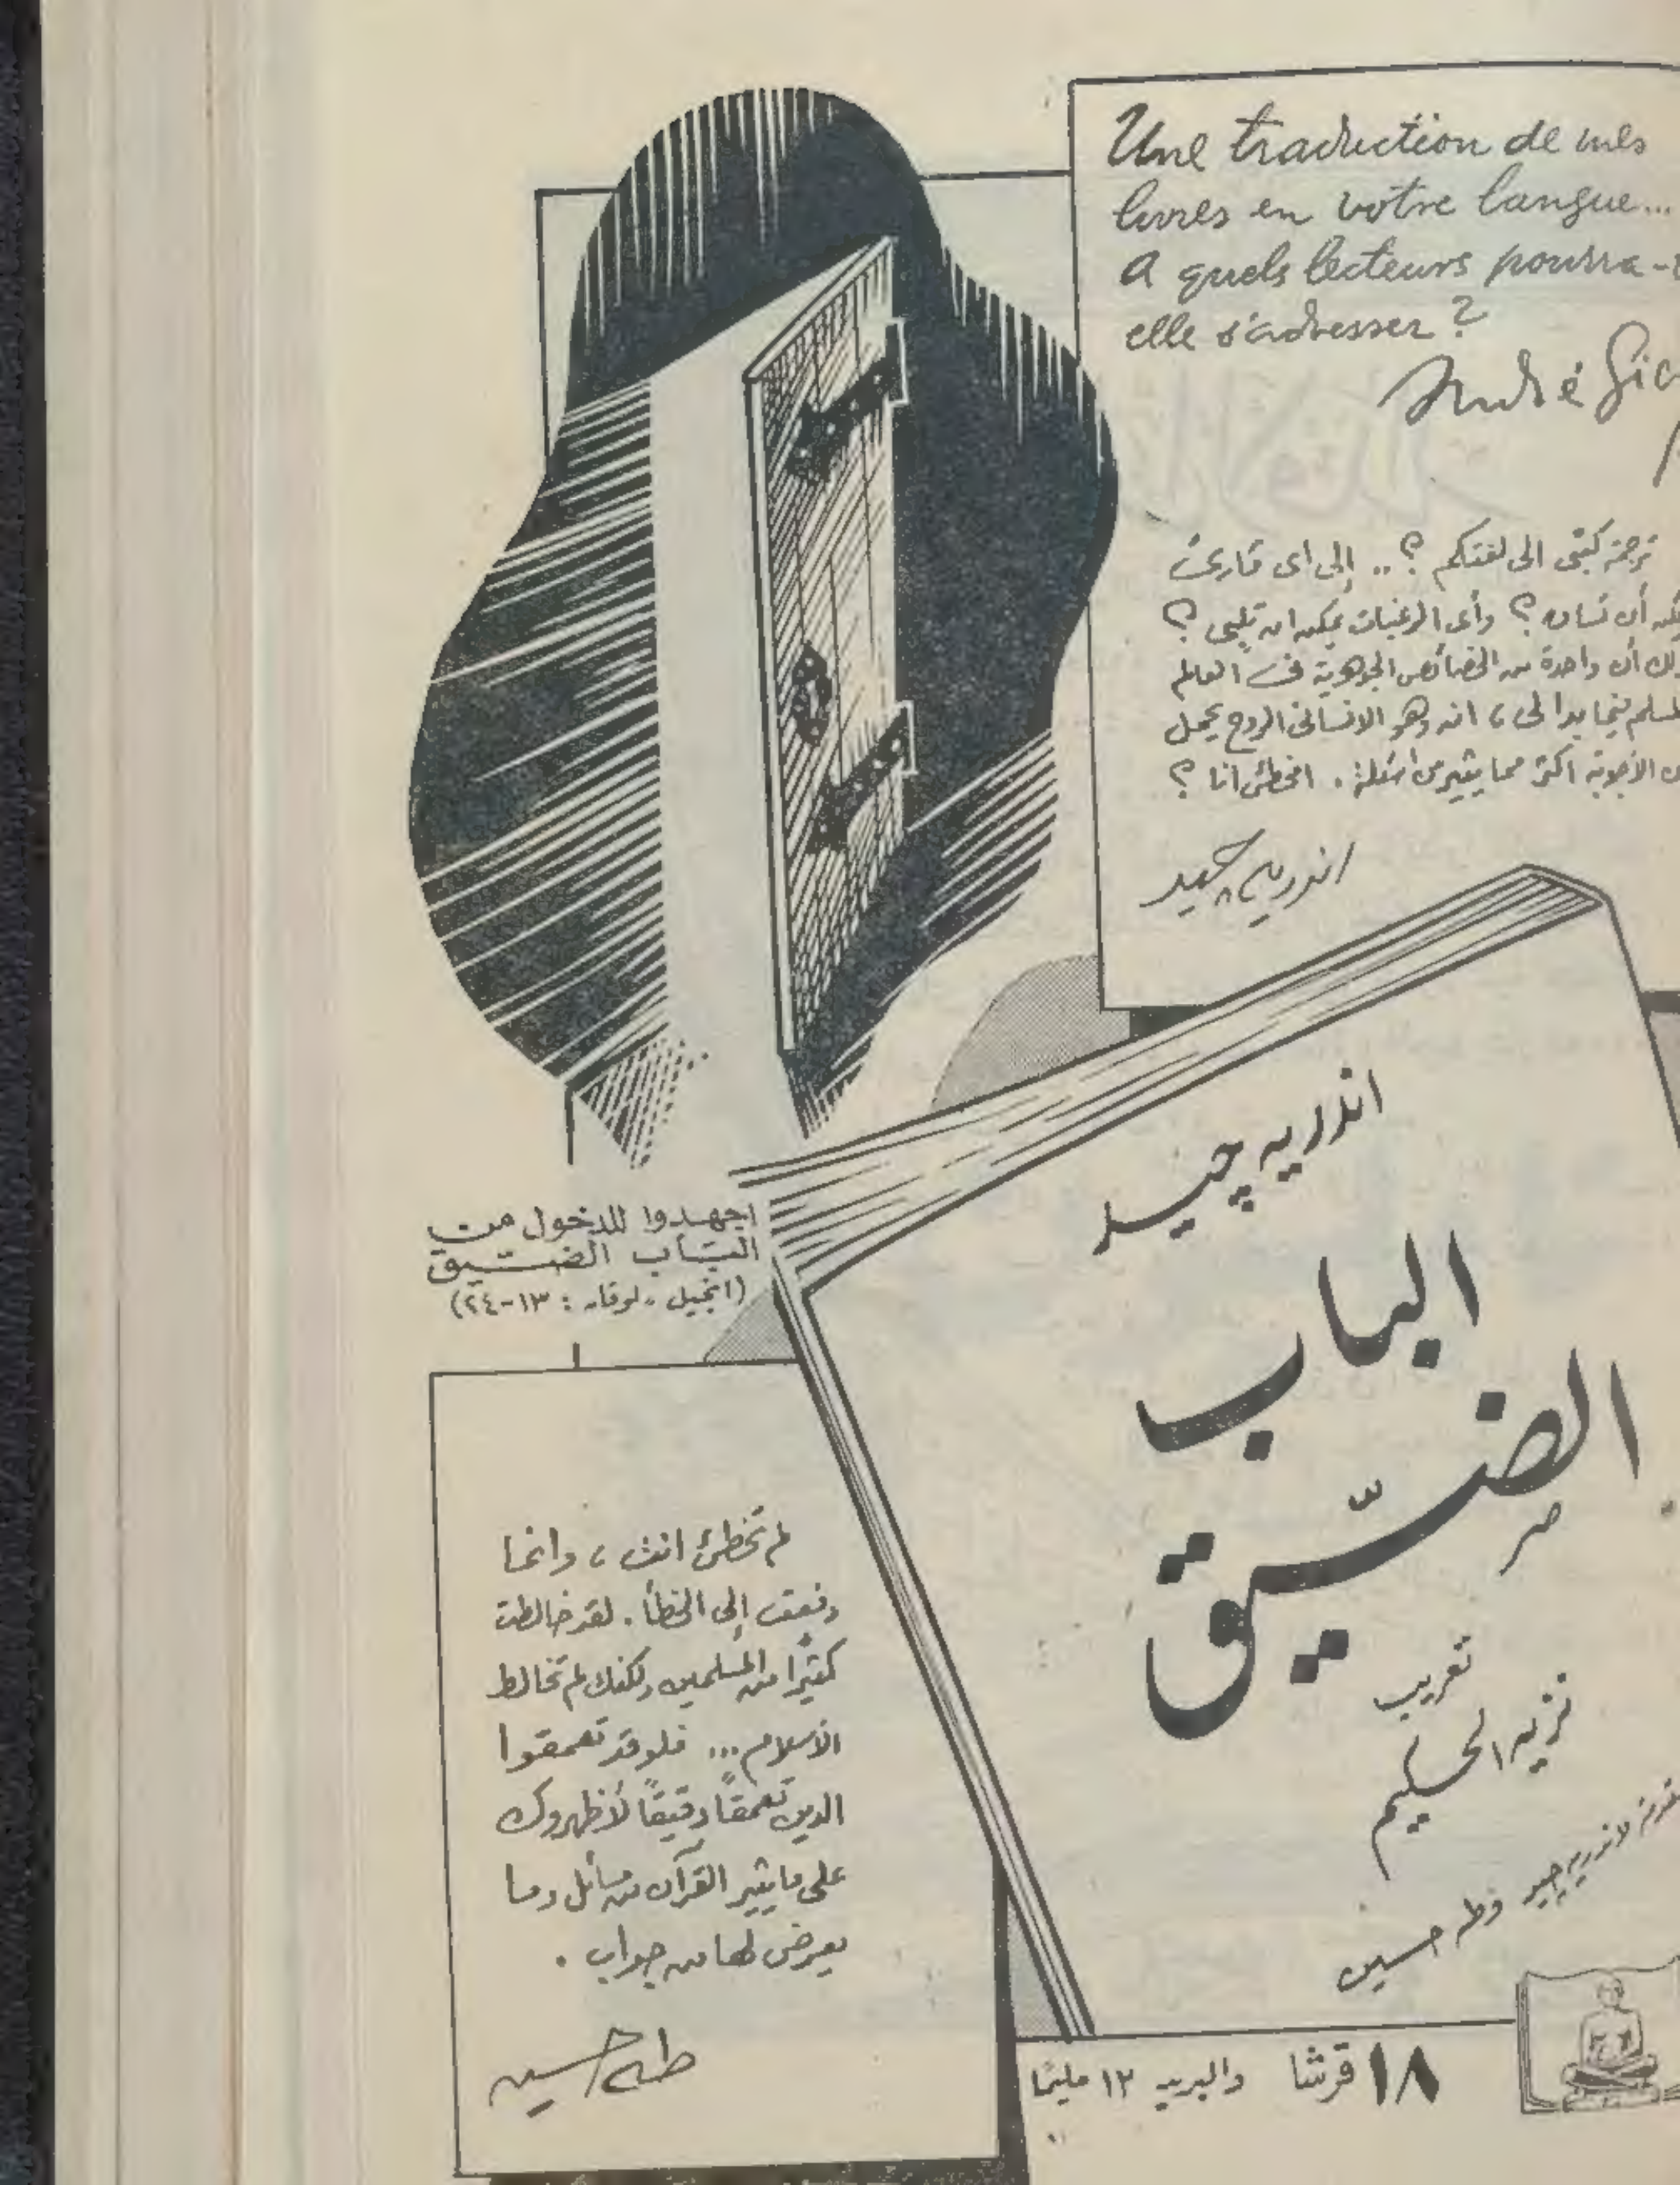 Une traduction de mes
livres en votre langue...
A quels lecteurs pourra-t
elle s'adresser ?
André Gid
ترجمة كتبى الى لغتكم ؟ .. إلى اى قارئ
يمكنه أن تساق ؟ وأى الرغبات يمكنه ان تلبى ؟
ذلك أن واحدة من الخصائص الجوهرية فى العالم
المسلم فيما بدا لى ، انه وهو الانسانى الروح يحمل
من الأجوبة اكثر مما يثير من اسئلة . امخطئ انا ؟
اندريه چيد
اندريه چيد
الباب
الضيّق
تعريب
نزيه الحكيم
مقدمة لاندريه چيد وطه حسين
اجهدوا للدخول من
الباب الضيق
(انجيل لوقا : ١٣-٢٤)
لم تخطئ انت ، وانما
دفعت إلى الخطأ . لقد خالطت
كثيرًا من المسلمين ولكنك لم تخالط
الاسلام ... فلو قد تعمقوا
الدين تعمقًا دقيقًا لأظهروك
على ما يثير القرآن من مسائل وما
يعرض لها من جواب .
طه حسين
١٨ قرشا والبريد ١٢ مليمًا